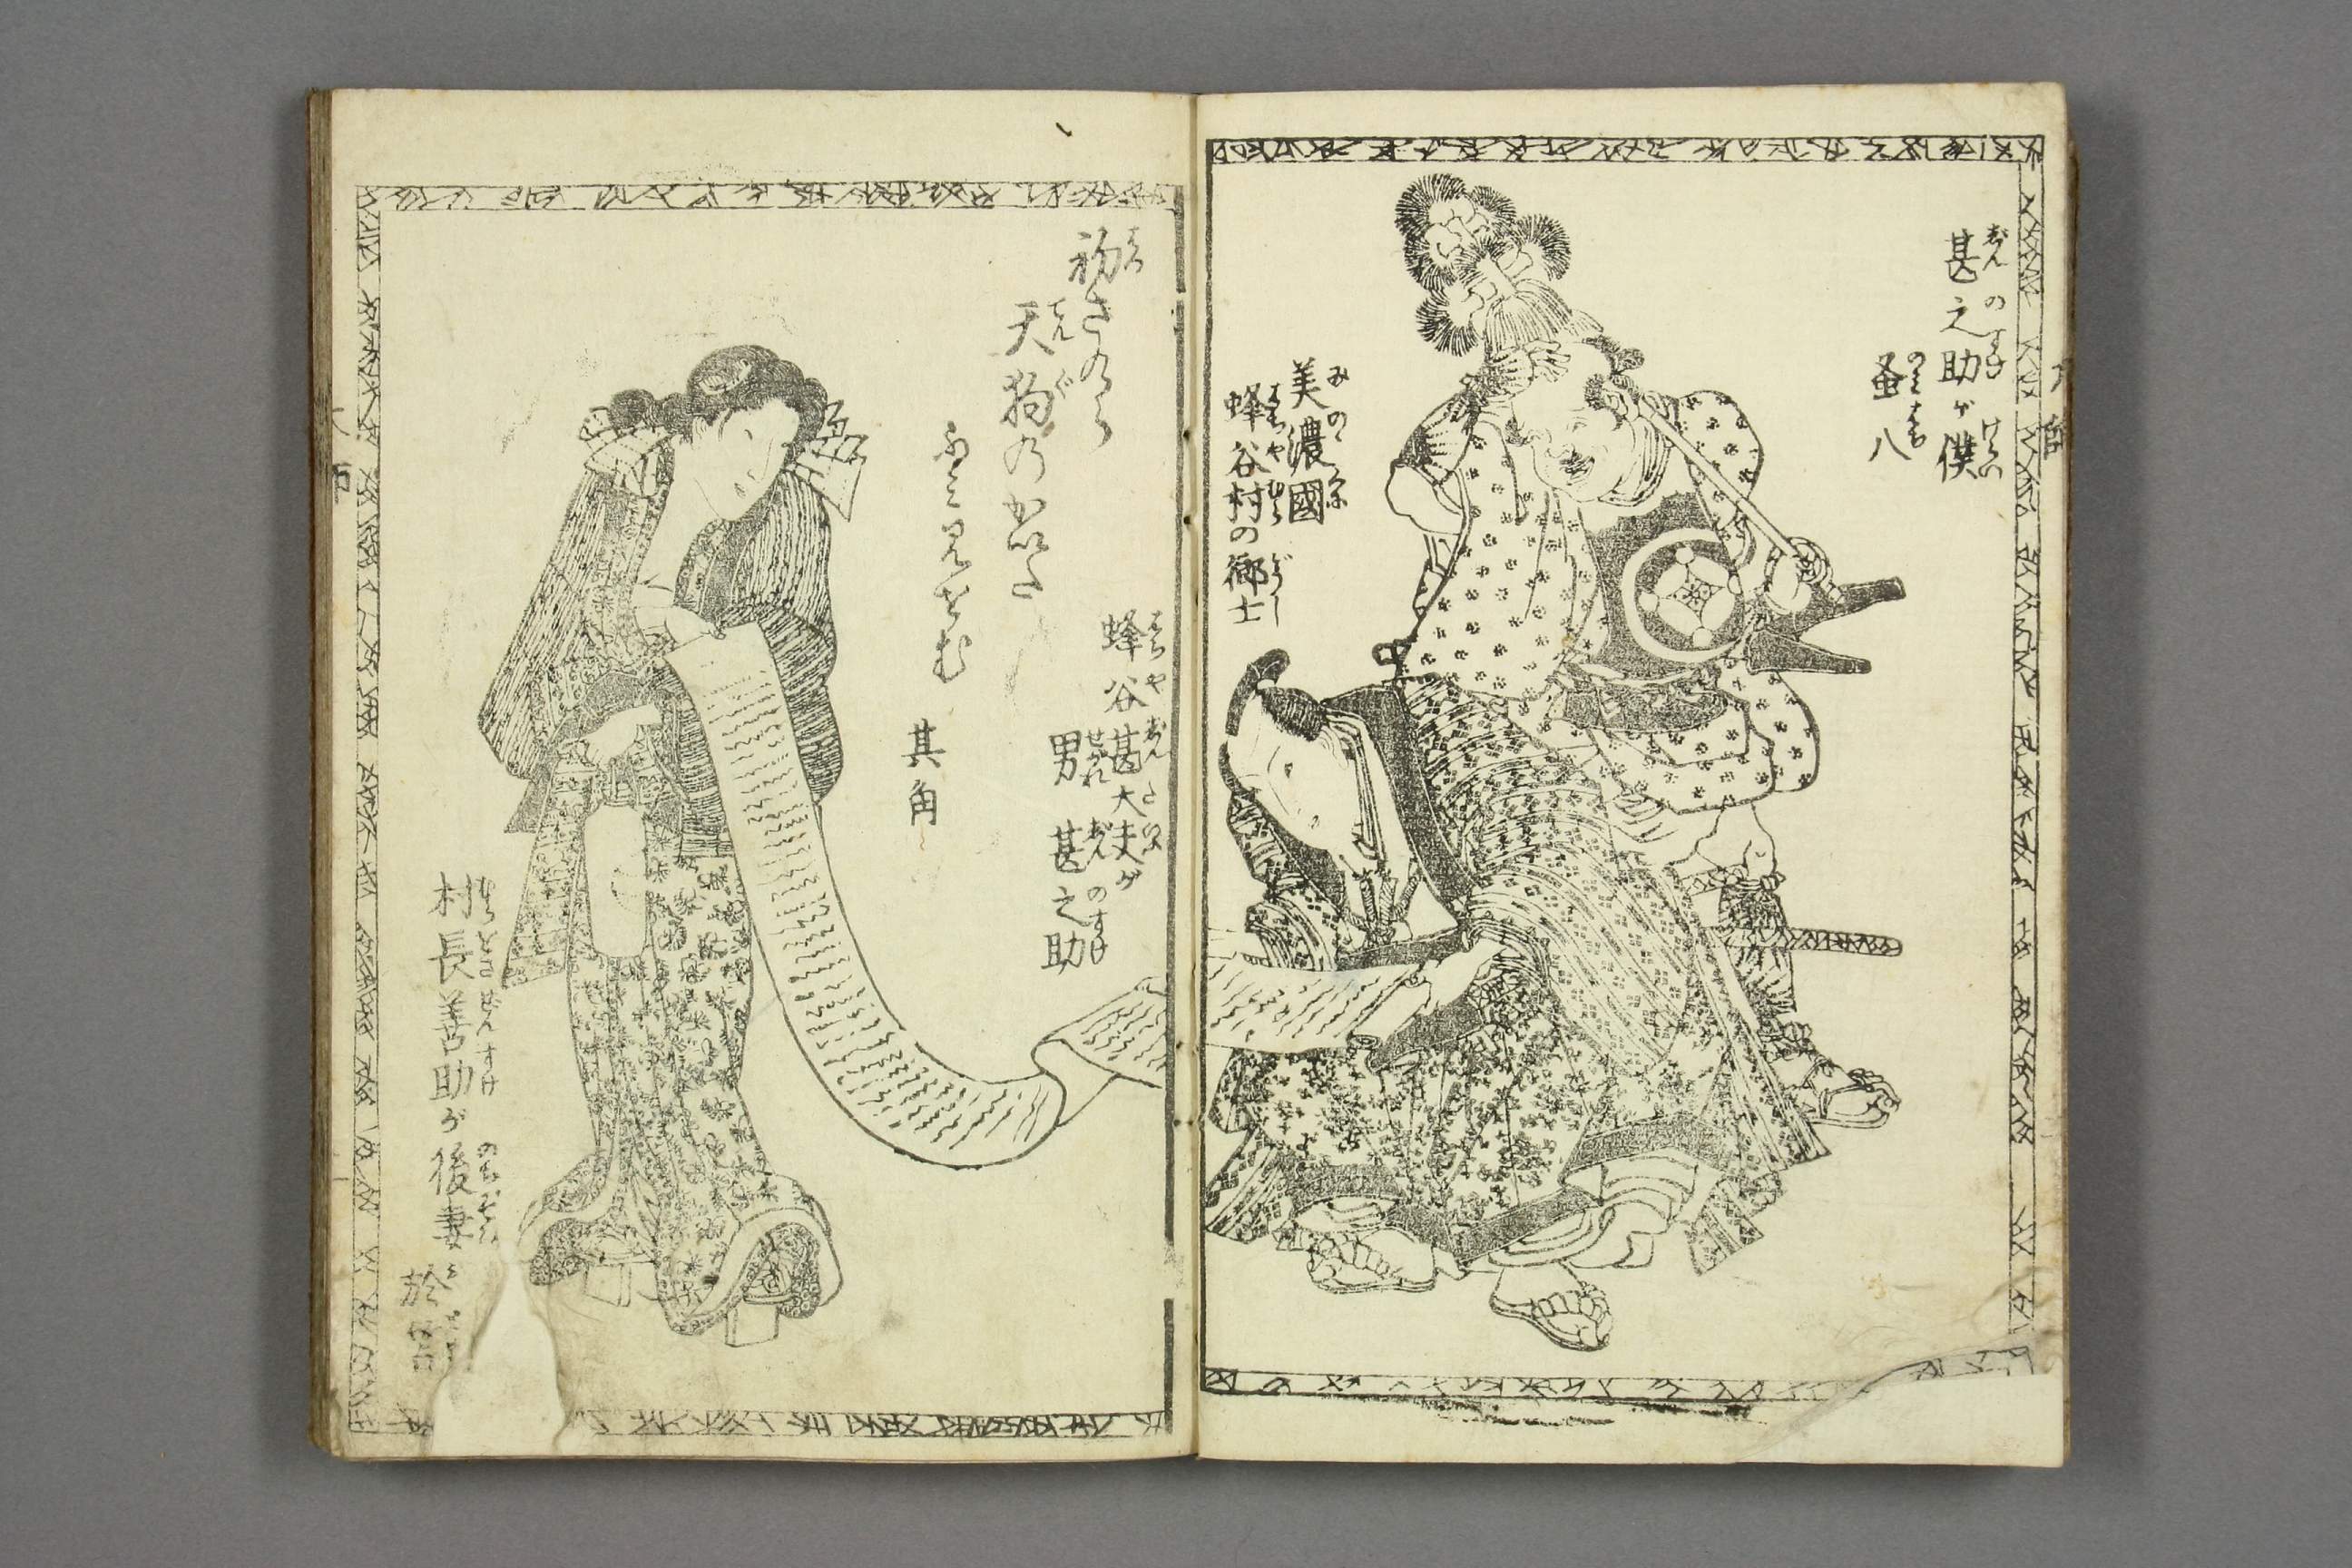 甚之助が僕
蚤八
美濃國
蜂谷村の郷士
蜂谷甚太夫が
男 甚之助
初さくら
天狗のかいた
ふみ見せむ
其角
村長善助が後妻